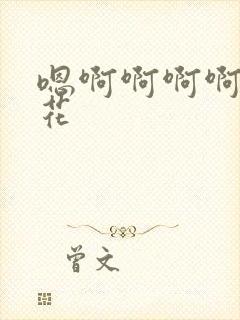 嗯啊啊啊啊
花
曾文